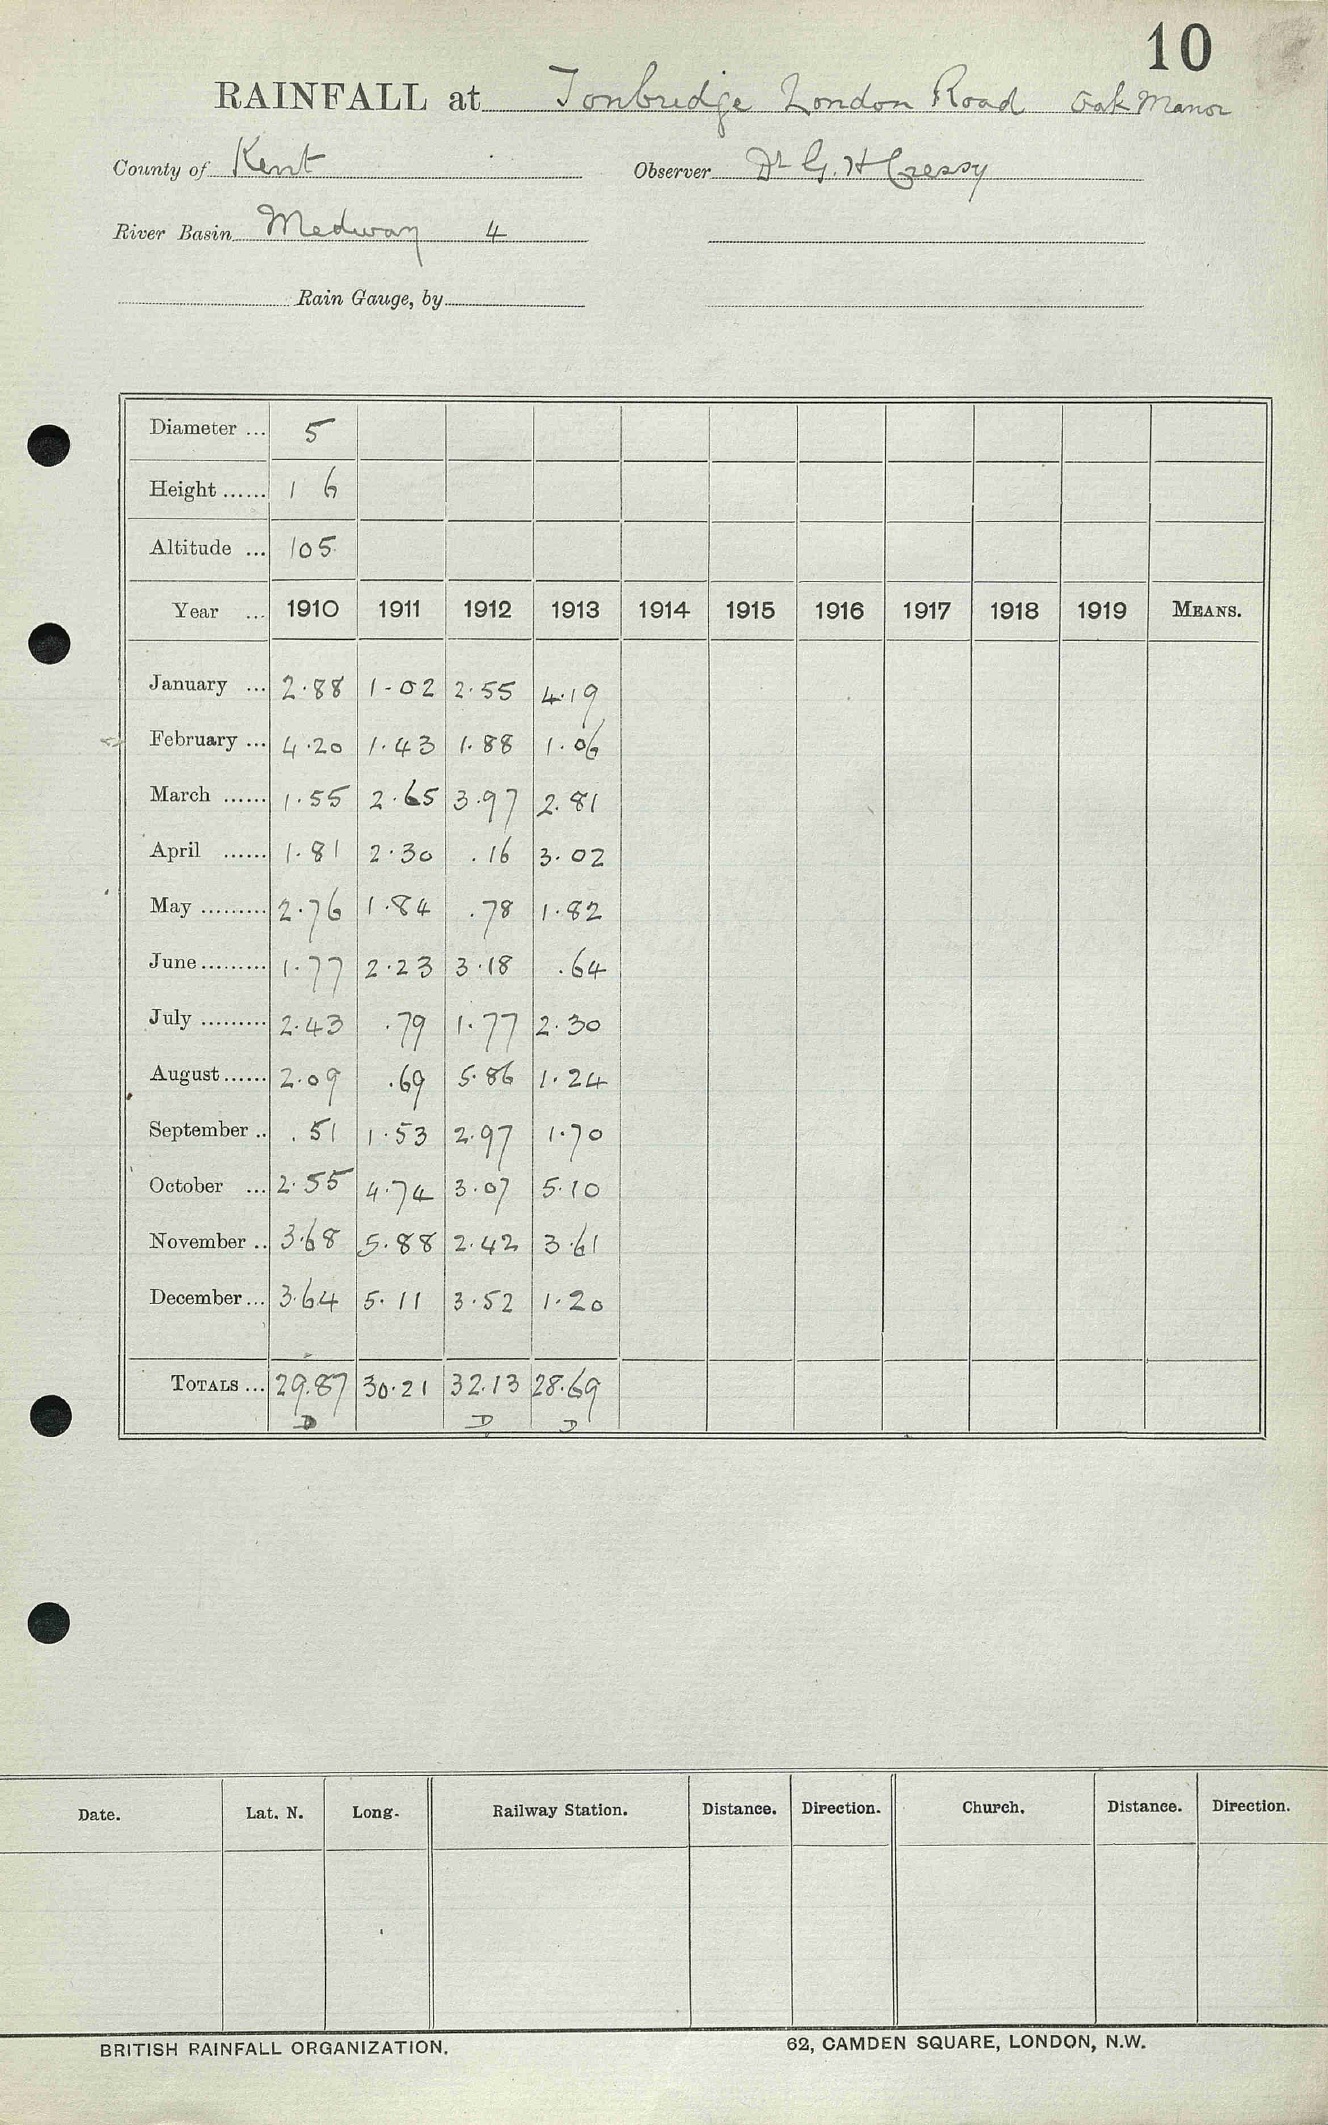 10
RAINFALL at Tonbridge London Road Oak Manor
County of Kent Observer Dr G. H Cressy
River Basin Medway 4
Rain Gauge, by
Diameter ... 5
Height ...... 1 6
Altitude ... 105
Year ... 1910 1911 1912 1913 1914 1915 1916 1917 1918 1919 MEANS.
January ... 2.88 1.02 2.55 4.19
February ... 4.20 1.43 1.88 1.06
March ...... 1.55 2.65 3.97 2.81
April ...... 1.81 2.30 .16 3.02
May ......... 2.76 1.84 .78 1.82
June ......... 1.77 2.23 3.18 .64
July ......... 2.43 .79 1.77 2.30
August ...... 2.09 .69 5.86 1.24
September .. .51 1.53 2.97 1.70
October ... 2.55 4.74 3.07 5.10
November .. 3.68 5.88 2.42 3.61
December ... 3.64 5.11 3.52 1.20
TOTALS ... 29.87 30.21 32.13 28.69
D D D
Date. Lat. N. Long. Railway Station. Distance. Direction. Church. Distance. Direction.
BRITISH RAINFALL ORGANIZATION. 62, CAMDEN SQUARE, LONDON, N.W.